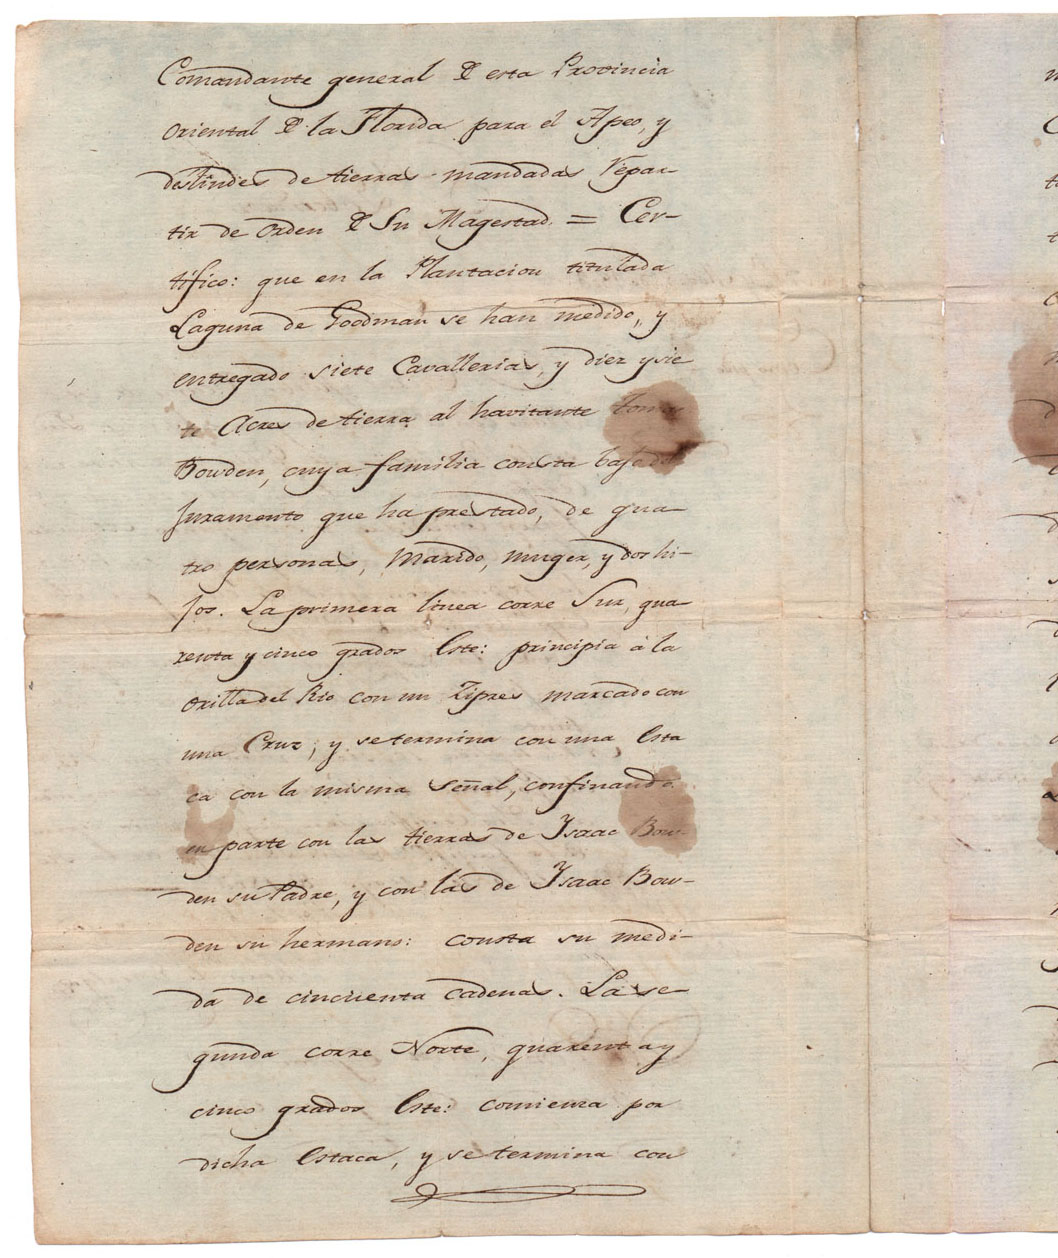 Comandante general de esta Provincia
Oriental de la Florida para el Apeo, y
deslindes de tierras mandadas repar-
tir de orden de Su Magestad. = Cer-
tifico: que en la Plantacion titulada
Laguna de Goodman se han medido, y
entregado siete Cavallerias, y diez y sie
te Acres de tierra al havitante Tomas
Bowden, cuya familia consta bajo del
Juramento que ha prestado, de qua-
tro personas, Marido, muger, y dos hi-
jos. La primera linea corre Sur, qua-
renta y cinco grados Este: principia à la
orilla del Rio con un Zipres marcado con
una Cruz, y se termina con una Esta
ca con la misma señal, confinando
en parte con las tierras de Ysaac Bow-
den su Padre, y con las de Ysaac Bow-
den su hermano: consta su medi-
da de cincuenta cadenas. La se-
gunda corre Norte, quarenta y
cinco grados Este: comienza por
dicha Estaca, y se termina con